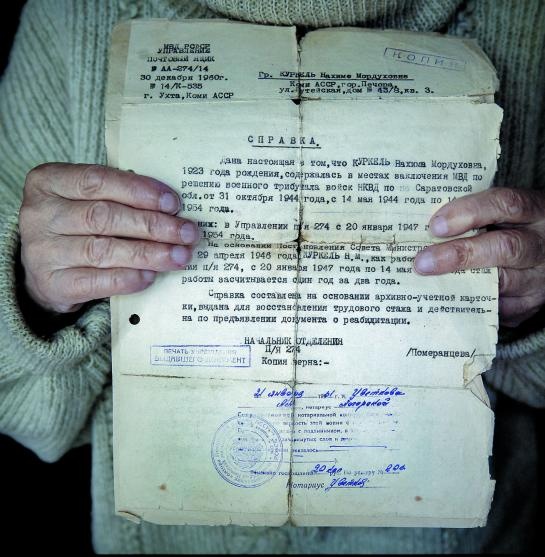 МВД РСФСР
УПРАВЛЕНИЕ
ПОЧТОВЫЙ ЯЩИК
№ АА-274/14
30 декабря 1960г.
№ 14/К-535
г. Ухта, Коми АССР
КОПИЯ
Гр. КУРКЕЛЬ Нахиме Мордуховне
Коми АССР, гор.Печора,
ул. Путейская, дом № 43/8, кв. 3.
СПРАВКА.
Дана настоящая в том, что КУРКЕЛЬ Нахима Мордуховна,
1923 года рождения, содержалась в местах заключения МВД по
решению военного трибунала войск НКВД по Саратовской
обл. от 31 октября 1944 года, с 14 мая 1944 года по 14
1954 года.
них: в Управлении п/я 274 с 20 января 1947
1954 года.
На основании Постановления Совета Министров
29 апреля 1946 года, КУРКЕЛЬ Н.М., как
п/я 274, с 20 января 1947 года по 14 мая
работы засчитывается один год за два года.
Справка составлена на основании архивно-учетной карточ-
ки, выдана для восстановления трудового стажа и действитель-
на по предъявлении документа о реабилитации.
НАЧАЛЬНИК ОТДЕЛЕНИЯ
П/Я 274
/Померанцева/
Копия верна:-
ПЕЧАТЬ УЧРЕЖДЕНИЯ
ВЫДАВШЕГО ДОКУМЕНТ
21 января
нотариус
нотариальной
верность этой копии с
с подлинником, в
зачеркнутых слов и
оказалось
госпошлины 20 коп по реестру №
Нотариус